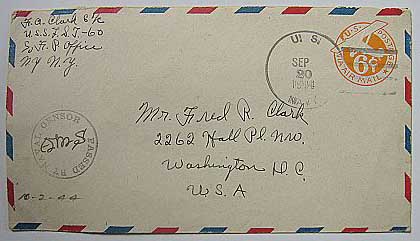 H.A. Clark S 1/c
U.S.S. L.S.T.-60
℅ F. P Office
N.Y. N.Y.
U. S.
SEP
20
NAVY
U.S. POSTAGE
6¢
VIA AIR MAIL
Mr. Fred R. Clark
2262 Hall Pl. N.W.
Washington D.C.
U.S.A
PASSED BY NAVAL CENSOR
10-2-44